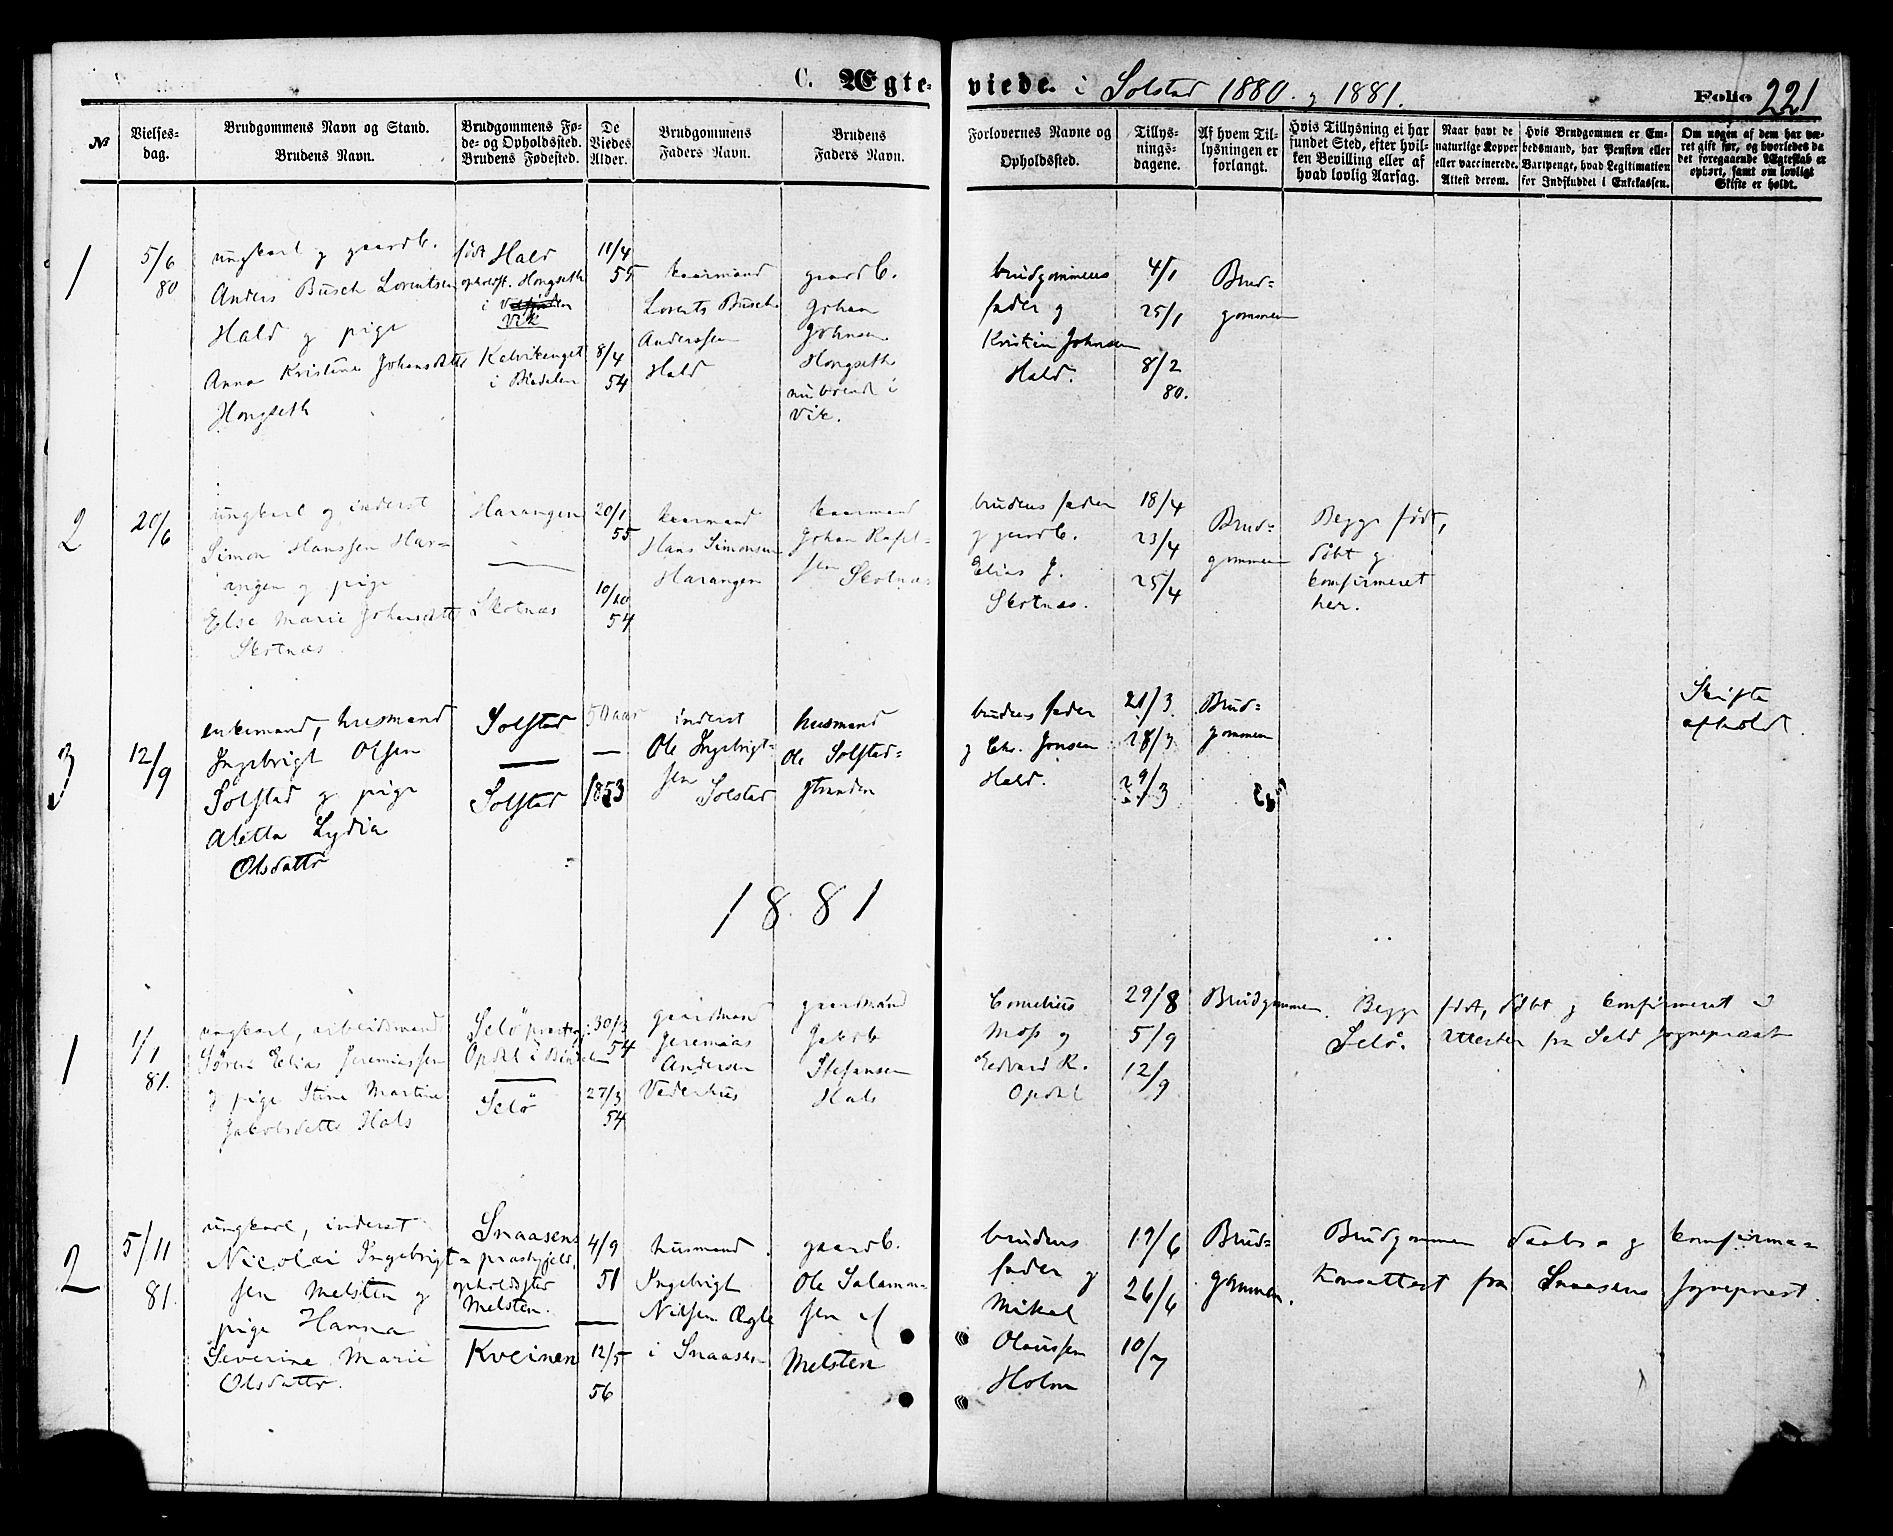 C. Ægte-
viede i Solstad 1880 og 1881.
Folio 221
№
Vielses-
dag.
Brudgommens Navn og Stand.
Brudens Navn.
Brudgommens Fø-
de- og Opholdssted.
Brudens Fødested.
De
Viedes
Alder.
Brudgommens
Faders Navn.
Brudens
Faders Navn.
Forlovernes Navne og
Opholdssted.
Tillys-
nings-
dagene.
Af hvem Til-
lysningen er
forlangt.
Hvis Tillysning ei har
fundet Sted, efter hvil-
ken Bevilling eller af
hvad lovlig Aarsag.
Naar havt de
naturlige Kopper
eller vaccinerede.
Attest derom.
Hvis Brudgommen er Em-
bedsmand, har Pension eller
Vartpenge, hvad Legitimation
for Indskuddet i Enkekassen.
Om nogen af dem har væ-
ret gift før, og hvorledes da
det foregaaende Ægteskab er
ophørt, samt om lovligt
Skifte er holdt.
1
5/6
80
ungkarl og gaardb.
Anders Busch Lorentsen
Hald og pige
Anna Kristina Johansdatter
Hongseth
født Hald
opholdst. Hongseth
i
Vik
Kelvikenget
i Bindalen
11/4
55
8/4
54
kaarmand
Lorents Busch
Anderssen
Hald
gaardb.
Johan
Johnsen
Hongseth
nuboende i
Vik.
brudgommens
fader og
Kristian Johnsen
Hald.
4/1
25/1
8/2
80.
Brud-
gommen
2
20/6
ungkarl og inderst
Simon Hanssen Har-
angen og pige
Else Marie Johansdtt
Skotnæs
Harangen
Skotnæs
20/1
55
10/10
54
kaarmand
Hans Simonsen
Harangen
kaarmand
Johan Rafael-
sen Skotnæs
brudens fader
og gaardb.
Elias J.
Skotnæs.
18/4
23/4
25/4
Brud-
gommen
Begge født,
døbt og
konfirmeret
her.
3
12/9
enkemand, husmand
Ingebrigt Olsen
Solstad og pige
Aletta Lydia
Olsdattr
Solstad
Solstad
50 aar
1853
inderst
Ole Ingebrigt-
sen Solstad
husmand
Ole Solstad-
stranden
brudens fader
og Chr. Jonsen
Hald.
21/3
28/3
29/3
Brud-
gommen
Skifte
afholdt.
1881
1
1/1
81.
ungkarl, arbeidsmand
Søren Elias Jeremiassen
og pige Stine Martine
Jakobsdattr Hals
Selø præstegj.
Opdal i Bindalen
Selø
30/3
54
27/3
54
gaardmand
Jeremias
Andersen
Vederhus
gaardmand
Jakob
Stefansen
Hals
Cornelius
Moss og
Edvard K.
Opdal
29/8
5/9
12/9
Brudgommen.
Begge født, døbt og konfirmeret i
Selø. Attester fra Selø sognepræst
2
5/11
81.
ungkarl, inderst
Nicolai Ingebrigt-
sen Melsten og
pige Hanna
Severine Marie
Olsdattr.
Snaasens
præstegjeld,
opholdsster
Melsten.
Kveinen
4/9
51
12/5
56
husmand
Ingebrigt
Nilsen Ægle
i Snaasen
gaardb.
Ole Salamon-
sen af
Melsten
brudens
fader og
Mikal
Olaussen
Holm
19/6
26/6
10/7
Brud-
gommen.
Brudgommen daabs- og konfirma-
tionsattest fra Snaasens sognepræst.